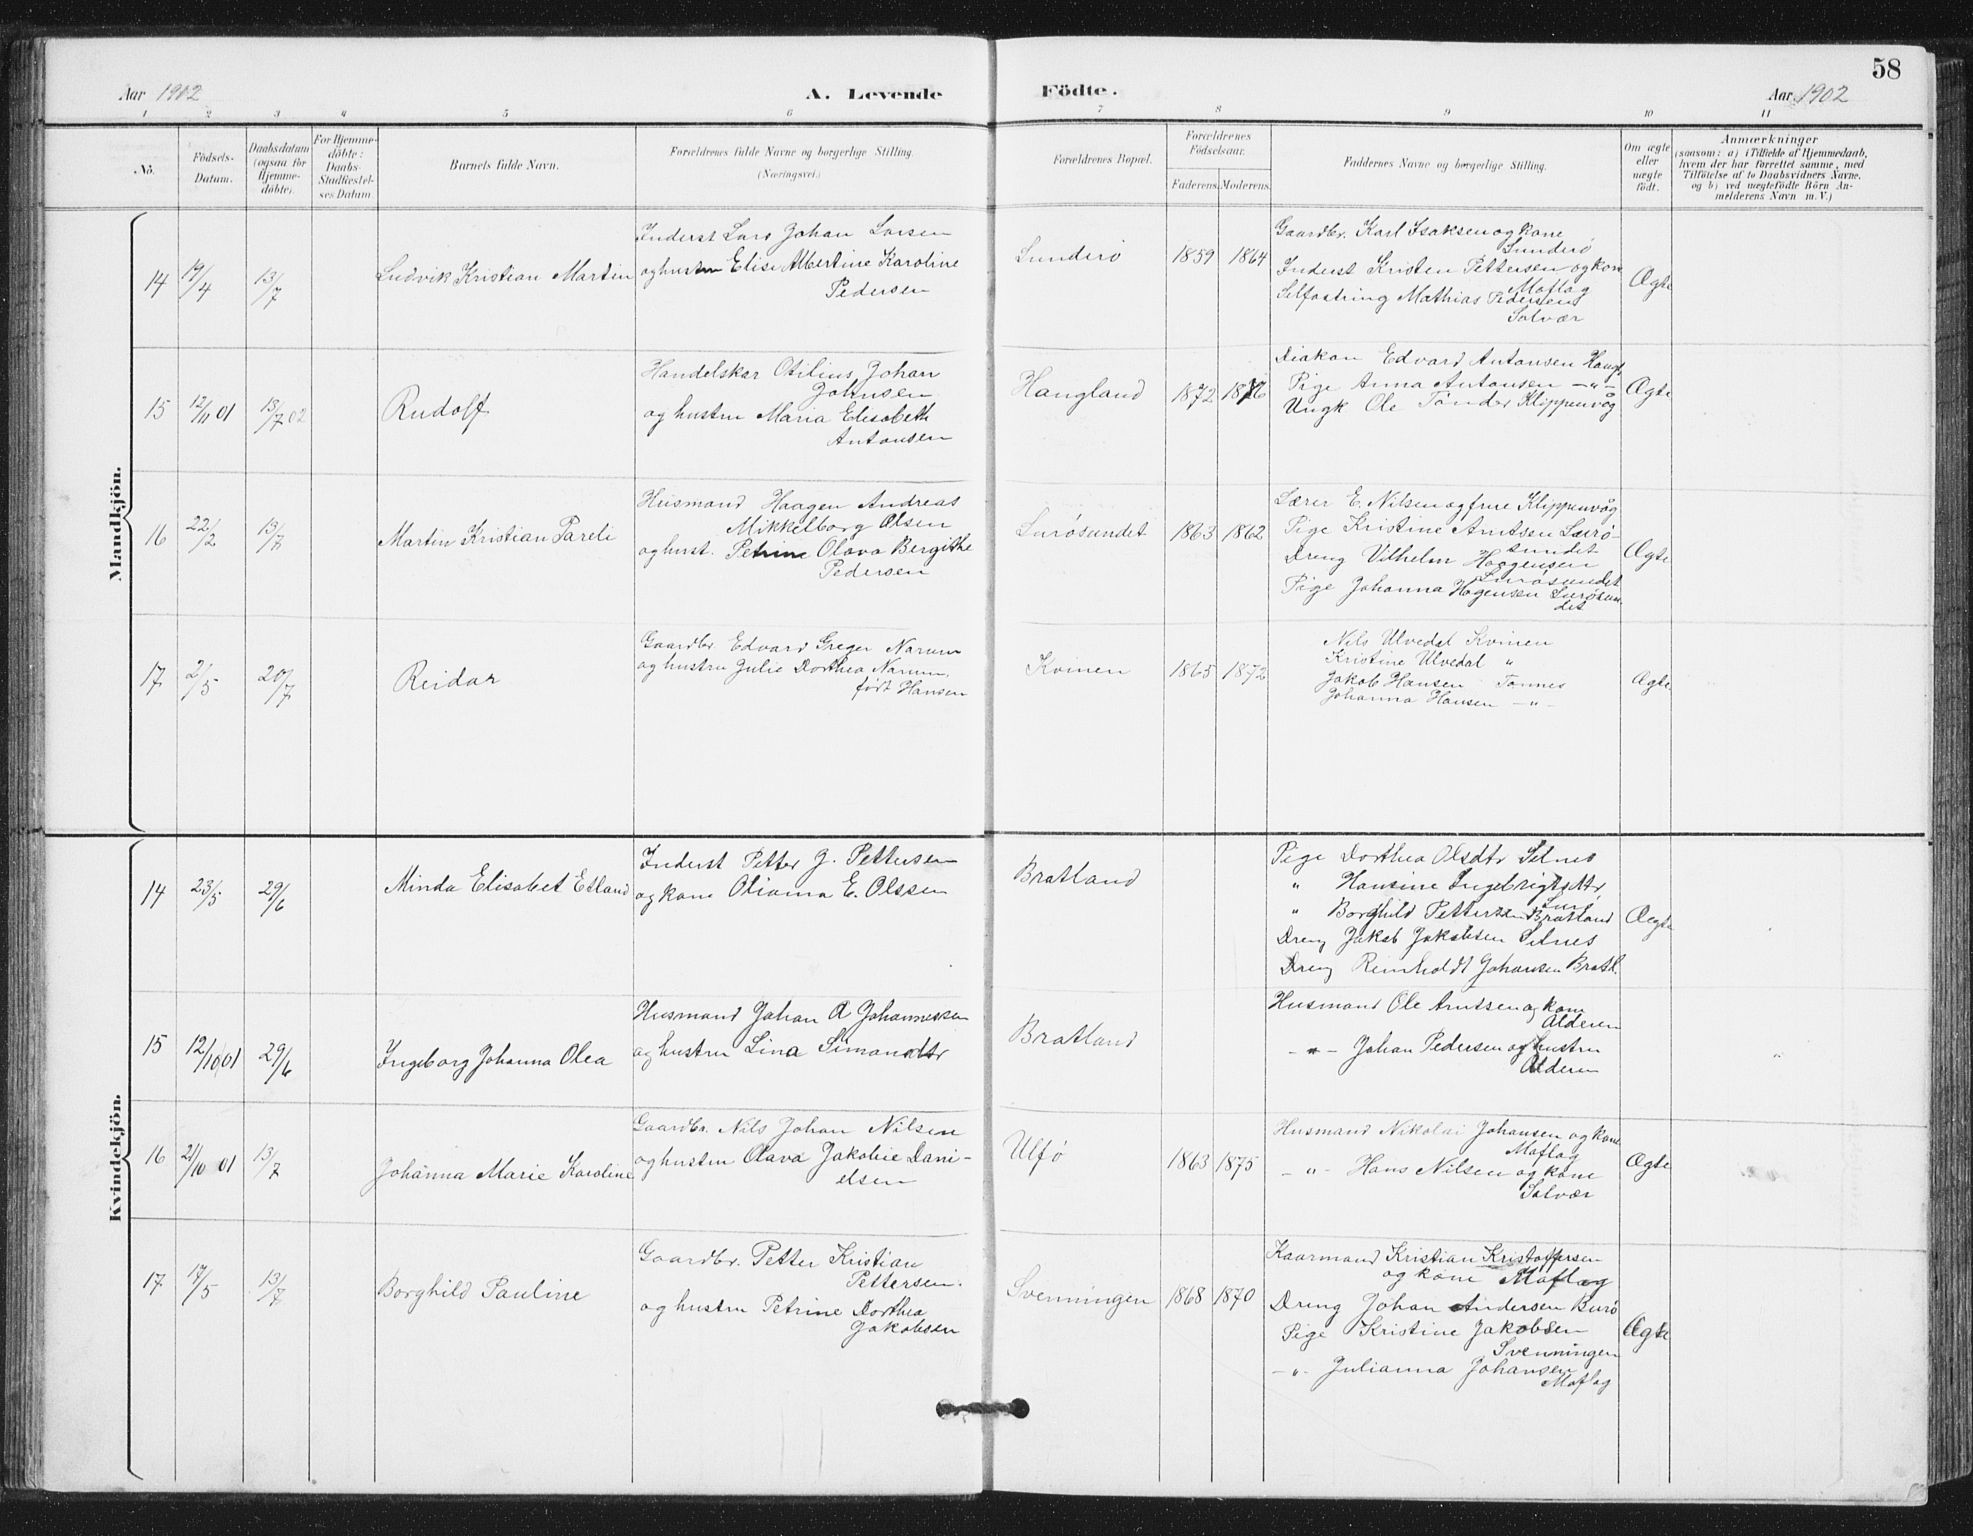 58
Aar 1902
A. Levende
Födte.
Aar 1902
1 2 3 4 5 6 7 8 9 10 11
No.
Födsels-
Datum.
Daabsdatum
(ogsaa for
Hjemme-
döbte).
For Hjemme-
döbte:
Daabs-
Stadfæstel-
ses Datum
Barnets fulde Navn.
Forældrenes fulde Navne og borgerlige Stilling.
(Næringsvei.)
Forældrenes Bopæl.
Forældrenes
Födselsaar.
Faderens. Moderens.
Faddernes Navne og borgerlige Stilling.
Om ægte
eller
uægte
födt.
Anmærkninger
(saasom: a) i Tilfælde af Hjemmedaab,
hvem der har forrettet samme, med
Tilföielse af to Daabsvidners Navne,
og b) ved uægtefödte Börn An-
melderens Navn m. V.)
Mandkjön.
14 19/4 13/7
Ludvik Kristian Martin
Inderst Lars Johan Larsen
og hustru Elise Albertine Karoline
Pedersen
Sunderö
1859 1864
Gaardbr. Karl Isaksen og kone
Sunderö
Inderst Kristen Pettersen og kone
Moflag
Selfostring Mathias Pedersen
Solvær
Ægte
15 12/11 01 13/7 02
Rudolf
Handelskar Otilius Johan
Johnsen
og hustru Maria Elisabeth
Antonsen
Haugland
1872 1876
Diakon Edvard Antonsen Haugl.
Pige Anna Antonsen -"-
Ungk Ole Tönder Klippenvåg
Ægte
16 22/2 13/7
Martin Kristian Pareli
Husmand Haagen Andreas
Mikkelborg Olsen
og hust. Petrine Olava Bergithe
Pedersen
Lurösundet
1863 1862
Lærer E. Nilsen og frue Klippenvåg
Pige Kristine Arntsen Lurö-
sundet
Dreng Vilhelm Haagensen
Lurösundet
Pige Johanna Hagensen Lurösun-
det
Ægte
17 2/5 20/7
Reidar
Gaardbr. Edvard Greger Narum
og hustru Julie Dorthea Narum,
født Hansen
Kvinen
1865 1872
Nils Ulvedal Kvinen
Kristine Ulvedal "
Jakob Hansen Tonnes
Johanna Hansen -"-
Ægte
Kvindekjön.
14 23/5 29/6
Minda Elisabet Etland
Inderst Petter J. Pettersen
og kone Oliana E. Olssen
Bratland
Pige Dorthea Olsdtr Selnes
" Hansine Ingebrigtsdtr
Lurö
" Borghild Pettersen Bratland
Dreng Jakob Jakobsen Selnes
Dreng Reinholdt Johansen Bratl.
Ægte
15 12/10 01 29/6
Ingeborg Johanna Olea
Husmand Johan A Johannessen
og hustru Lina Simondtr
Bratland
Husmand Ole Arntsen og kone
Alderen
-"- Johan Pedersen og hustru
Alderen
16 21/10 01 13/7
Johanna Marie Karoline
Gaardbr. Nils Johan Nilsen
og hustru Olava Jakobie Dani-
elsen
Ulfö
1863 1875
Husmand Nikolai Johansen og kone
Moflag
-"- Hans Nilsen og kone
Solvær
Ægte
17 17/5 13/7
Borghild Pauline
Gaardbr. Petter Kristian
Pettersen.
og hustru Petrine Dorthea
Jakobsen
Svenningen
1868 1870
Kaarmand Kristian Kristoffersen
og kone Moflag
Dreng Johan Andersen Burö
Pige Kristine Jakobsen
Svenningen
-"- Julianna Johansen
Moflag
Ægte